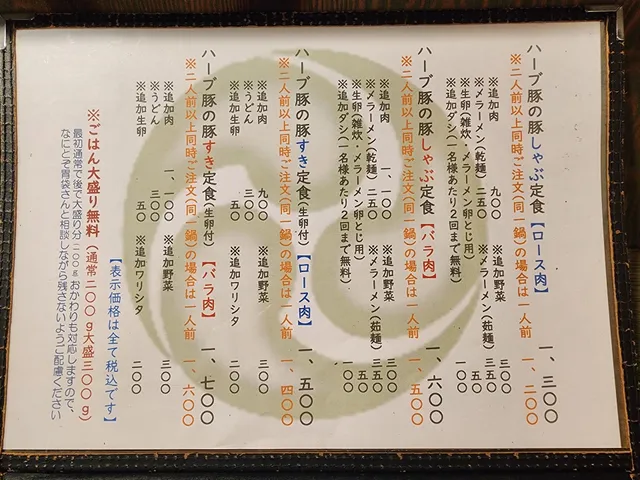 ハーブ豚の豚しゃぶ定食【ロース肉】 一、三〇〇
※二人前以上同時ご注文(同一鍋)の場合は一人前 一、二〇〇
※追加肉 九〇〇 ※追加野菜 三〇〇
※〆ラーメン(乾麺)二五〇 ※〆ラーメン(茹麺) 三五〇
※生卵(雑炊・〆ラーメン卵とじ用) 五〇
※追加ダシ(一名様あたり2回まで無料) 一〇〇
ハーブ豚の豚しゃぶ定食【バラ肉】 一、六〇〇
※二人前以上同時ご注文(同一鍋)の場合は一人前 一、五〇〇
※追加肉 一、一〇〇 ※追加野菜 三〇〇
※〆ラーメン(乾麺)二五〇 ※〆ラーメン(茹麺) 三五〇
※生卵(雑炊・〆ラーメン卵とじ用) 五〇
※追加ダシ(一名様あたり2回まで無料) 一〇〇
ハーブ豚の豚すき定食(生卵付)【ロース肉】 一、五〇〇
※二人前以上同時ご注文(同一鍋)の場合は一人前 一、四〇〇
※追加肉 九〇〇 ※追加野菜 三〇〇
※うどん 三〇〇
※追加生卵 五〇 ※追加ワリシタ 二〇〇
ハーブ豚の豚すき定食(生卵付)【バラ肉】 一、七〇〇
※二人前以上同時ご注文(同一鍋)の場合は一人前 一、六〇〇
※追加肉 一、一〇〇 ※追加野菜 三〇〇
※うどん 三〇〇
※追加生卵 五〇 ※追加ワリシタ 二〇〇
【表示価格は全て税込です】
※ごはん大盛り無料(通常二〇〇g大盛三〇〇g)
最初通常で後で大盛り分一〇〇gおかわりも対応しますので、
なにとぞ胃袋さんと相談しながら残さないようご配慮ください